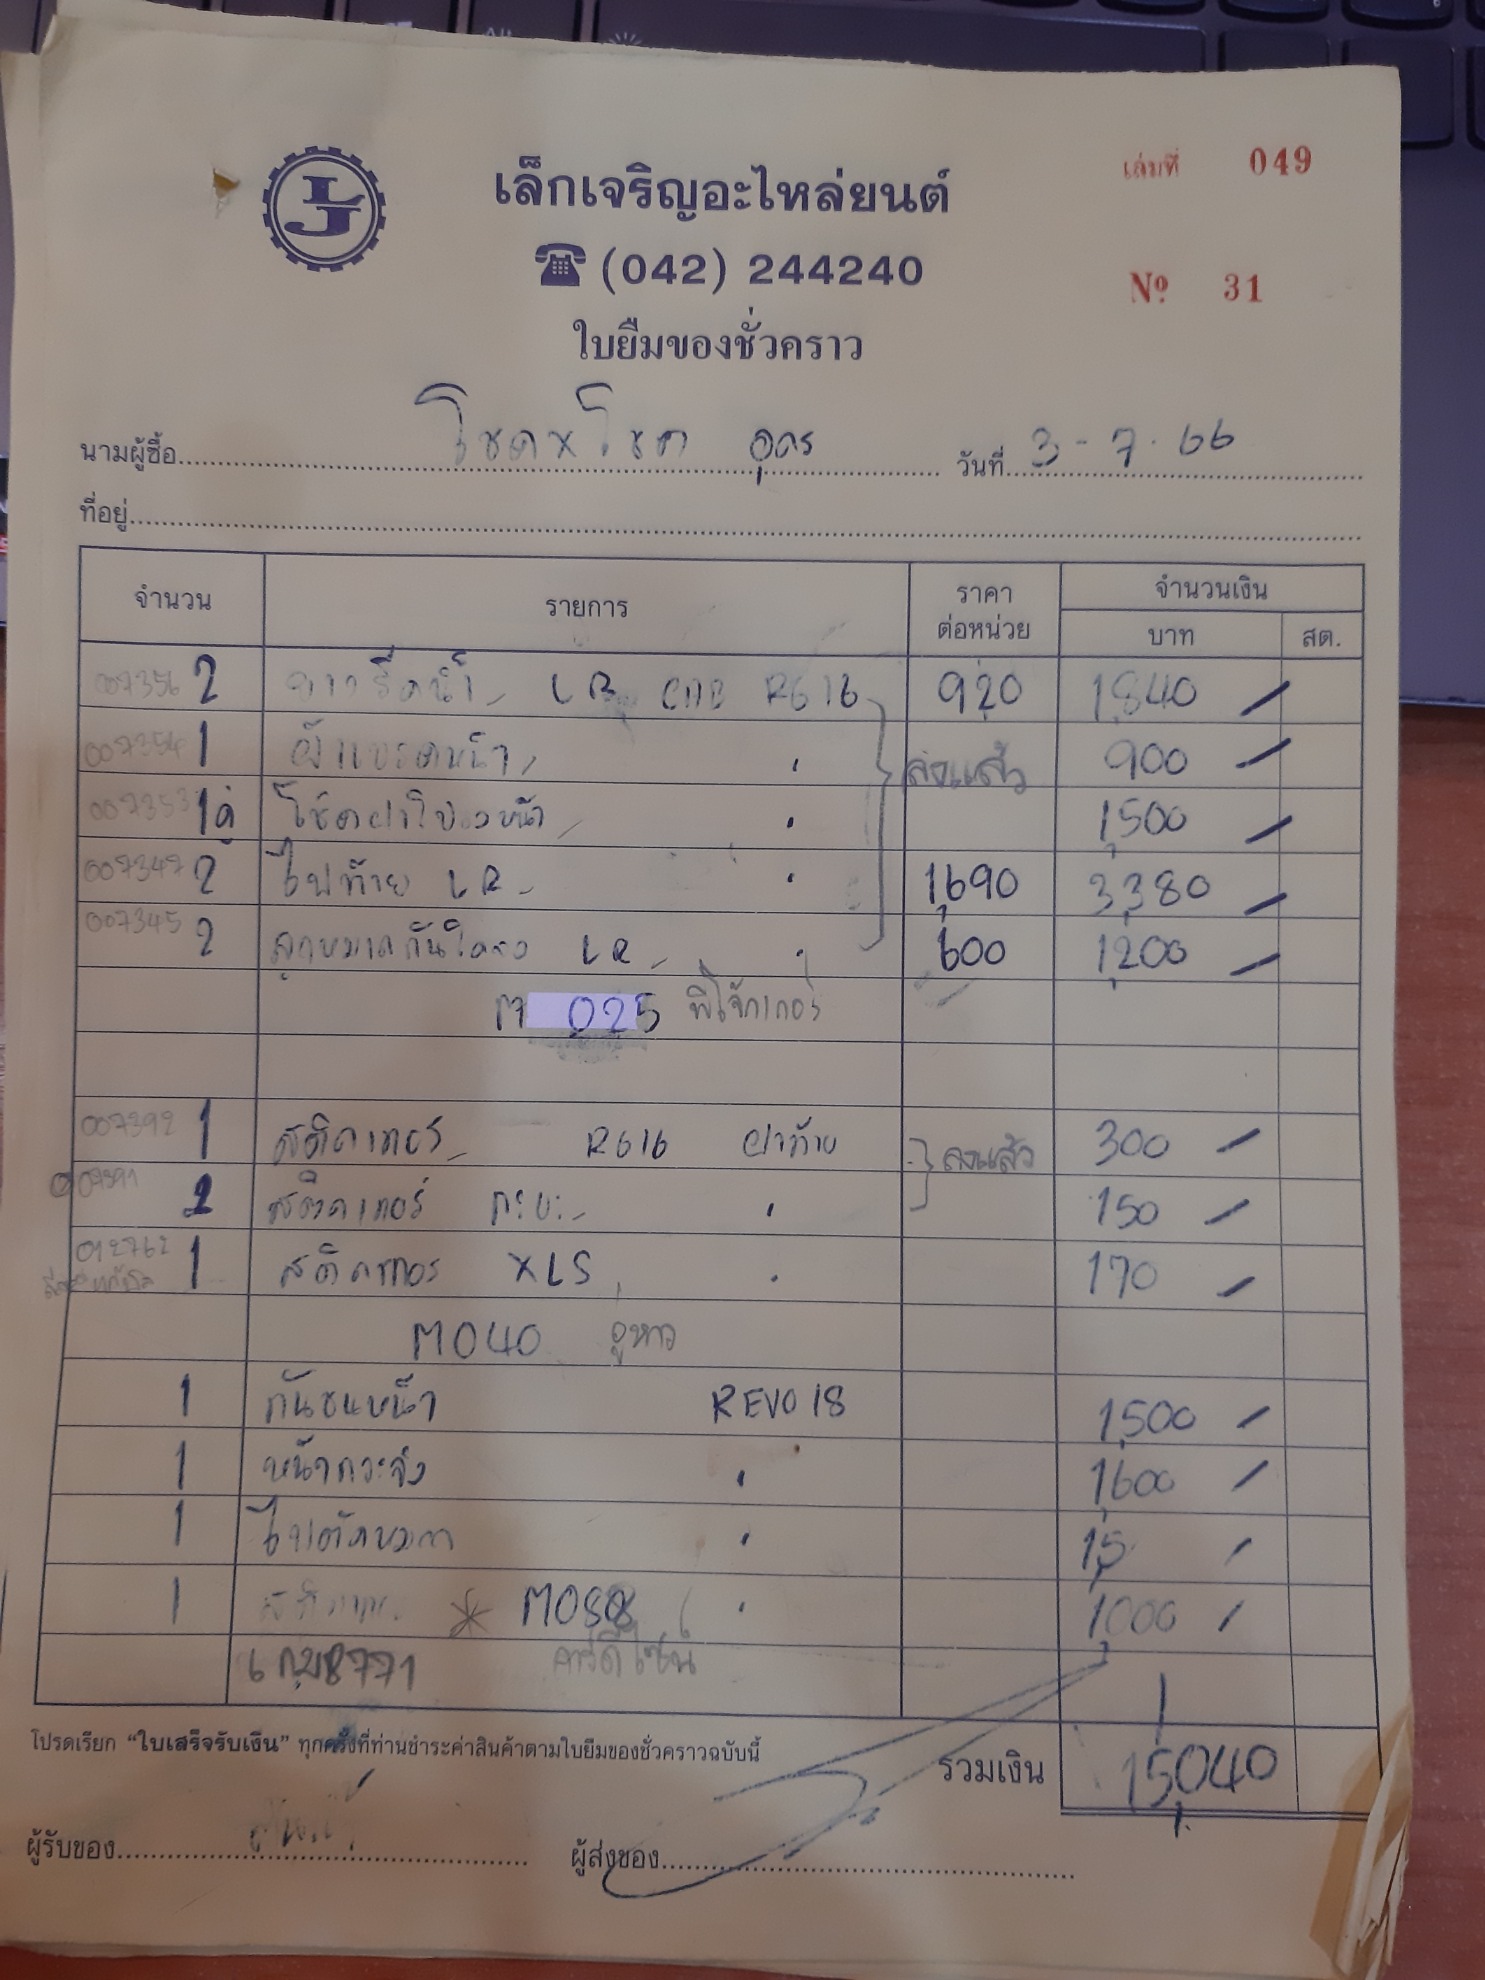 LJ
เล็กเจริญอะไหล่ยนต์
เล่มที่ 049
(042) 244240
Nº 31
ใบยืมของชั่วคราว
นามผู้ซื้อ โชคxโชค อุดร วันที่ 3-7-66
ที่อยู่
จำนวน รายการ ราคาต่อหน่วย จำนวนเงิน
บาท สต.
007356 2 ยางรีดน้ำ LR CAB R616 920 1,840
007354 1 900
007353 1คู่ 1,500
007347 2 ไฟท้าย LR 1,690 3,380
007345 2 LR 600 1,200
ลงแล้ว
M 025
007392 1 สติกเกอร์ R616 ฝาท้าย 300
2 สติกเกอร์ 150
ลงแล้ว
012762 1 สติกเกอร์ XLS 170
M040
1 กันชนหน้า REVO 18 1,500
1 หน้ากระจัง 1,600
1 ไฟตัดหมอก 15
1 M058 1,000
8771
โปรดเรียก “ใบเสร็จรับเงิน” ทุกครั้งที่ท่านชำระค่าสินค้าตามใบยืมของชั่วคราวฉบับนี้
รวมเงิน 15,040
ผู้รับของ ผู้ส่งของ